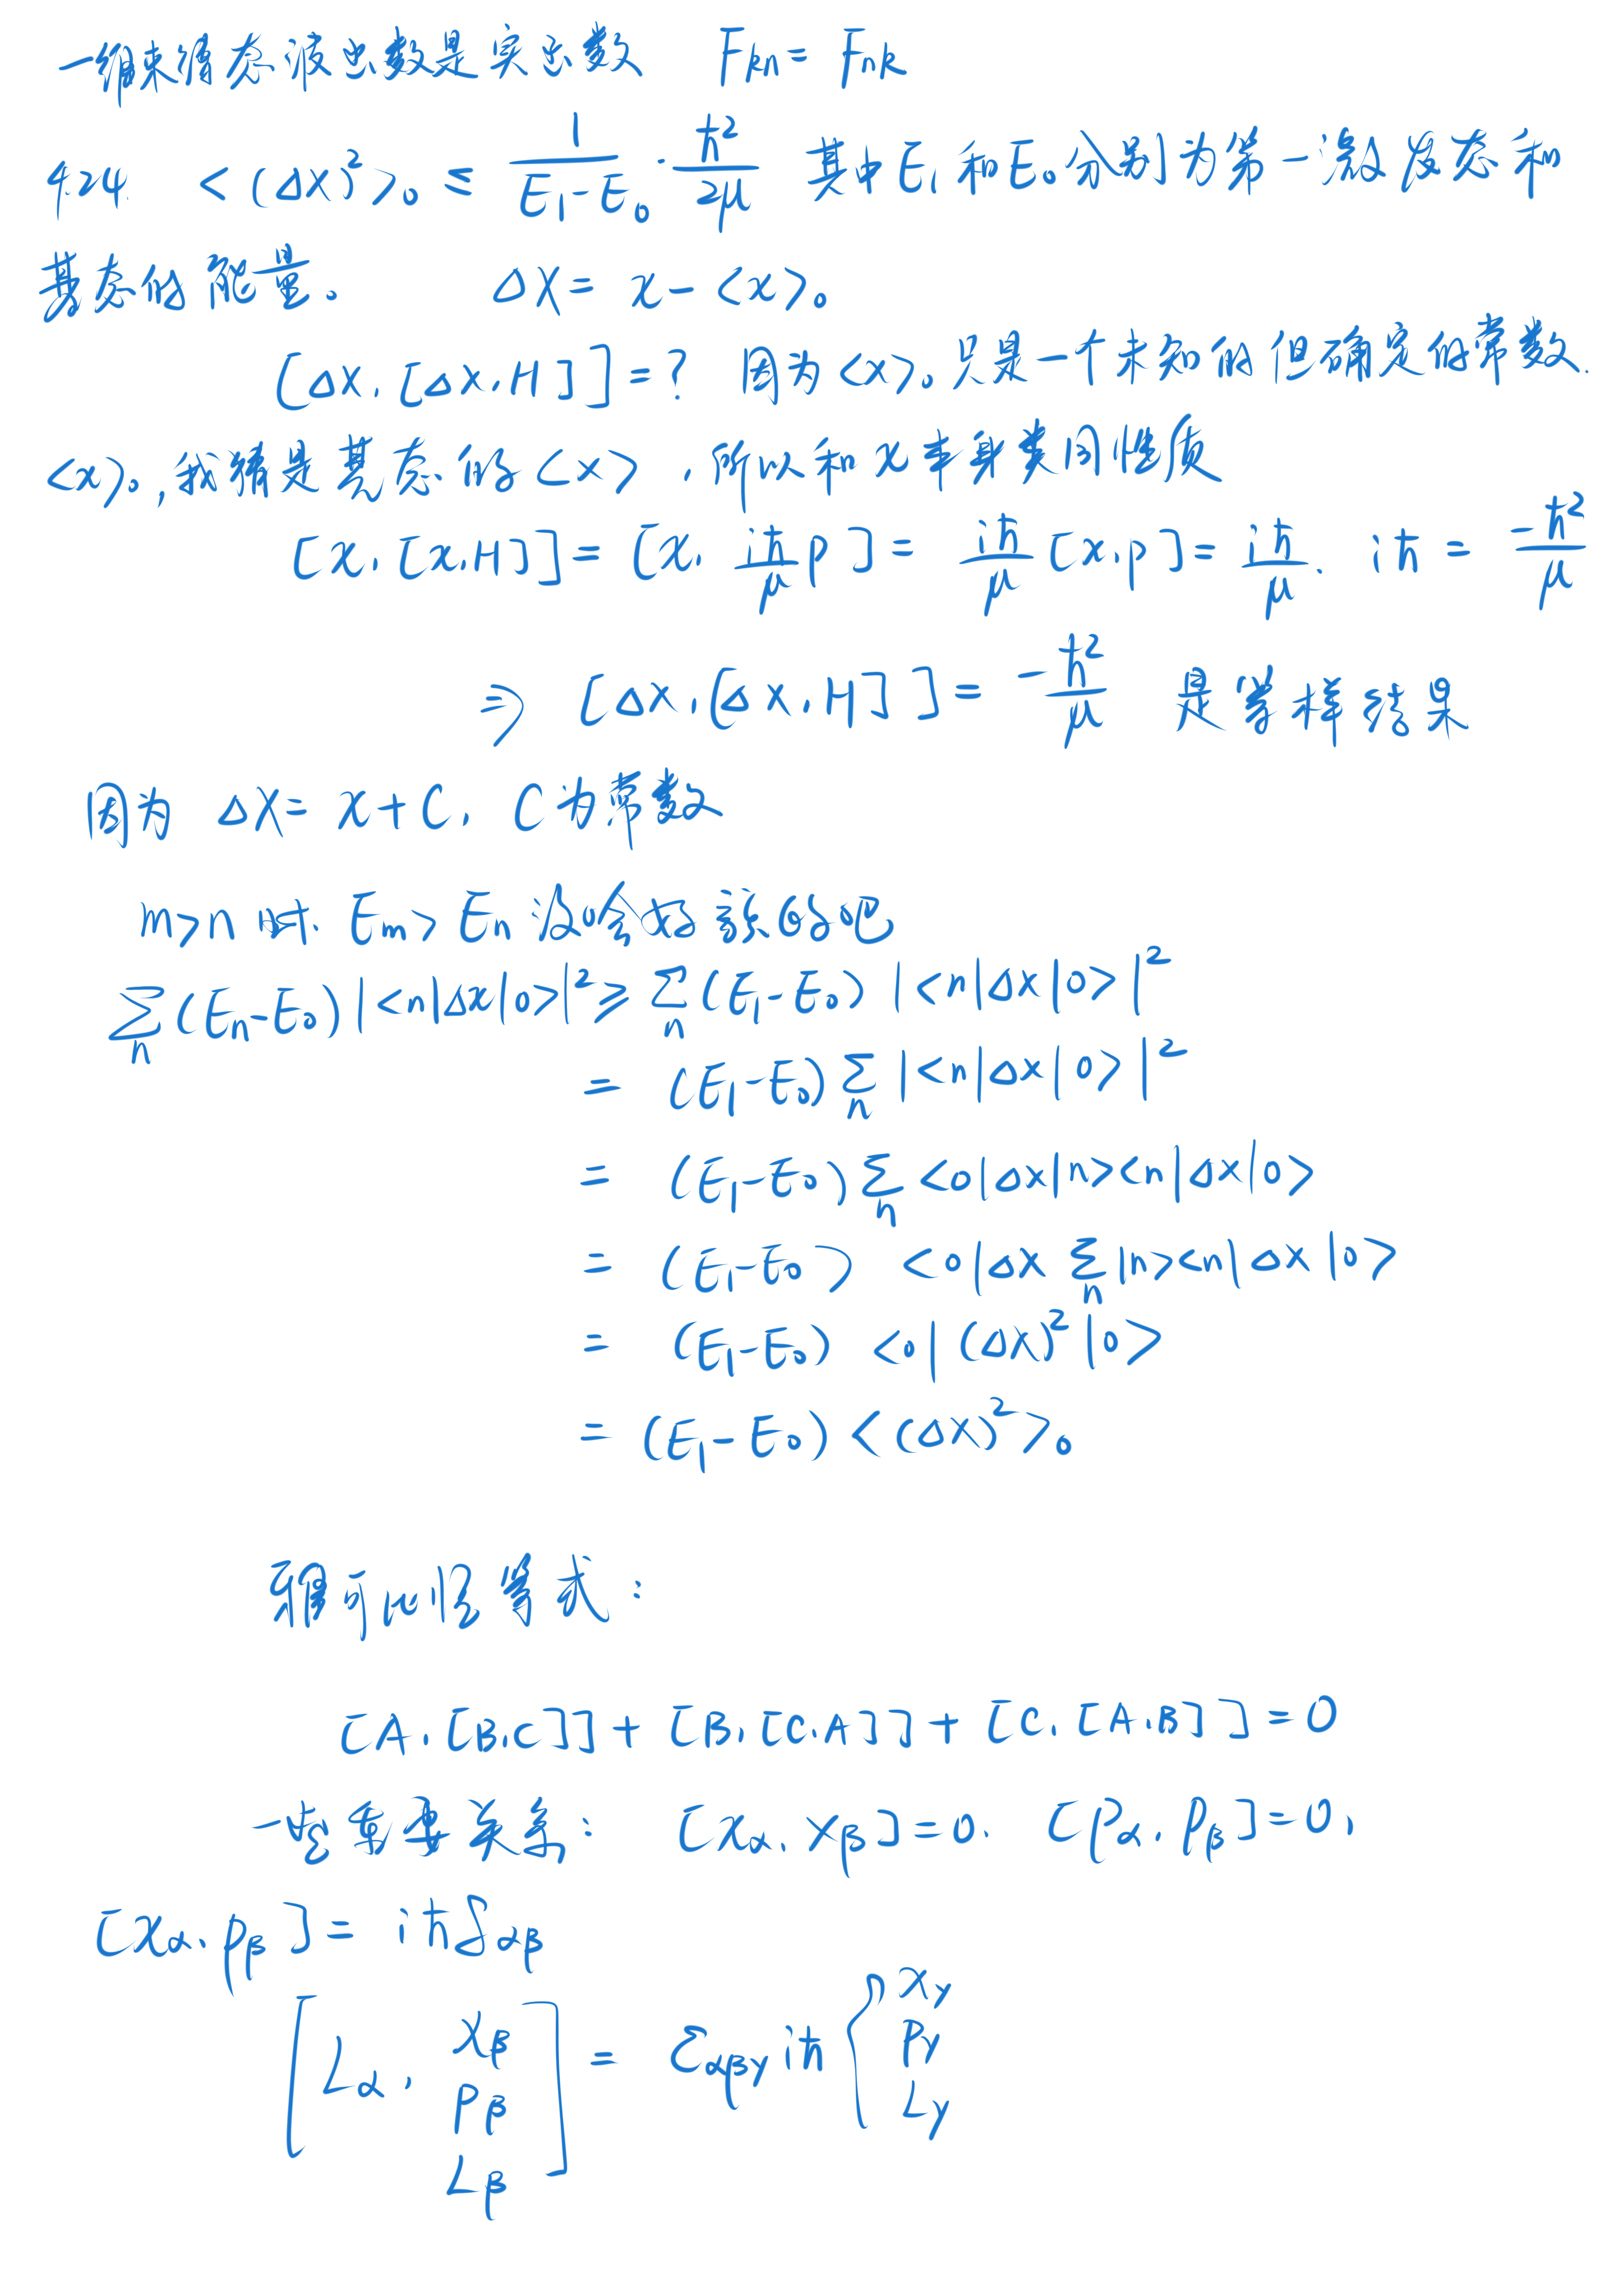 一维束缚态波函数是实函数 Fkn = Fnk
P24 <(ΔX)²>₀ ≤ 1/(E₁-E₀) · ħ²/2μ 其中E₁和E₀分别为第一激发态和
基态的能量。 ΔX = x - <x>₀
[ΔX, [ΔX, H]] = ? 因为<x>₀只是一个未知的但确定的常数.
<x>₀, 我猜是基态的<x>, 所以和x本身类同性质
[x, [x, H]] = [x, iħ/μ p] = iħ/μ [x, p] = iħ/μ · iħ = -ħ²/μ
⇒ [ΔX, [ΔX, H]] = -ħ²/μ 是等样结果
因为 ΔX = x + C, C为常数
m>n 时. Em > En 没会
∑n (En-E₀) |<n|Δx|0>|² ≥ ∑n (E₁-E₀) |<n|Δx|0>|²
= (E₁-E₀) ∑n |<n|Δx|0>|²
= (E₁-E₀) ∑n <0|Δx|n><n|Δx|0>
= (E₁-E₀) <0|Δx ∑n |n><n|Δx|0>
= (E₁-E₀) <0|(ΔX)²|0>
= (E₁-E₀) <(ΔX)²>₀
雅可比恒等式:
[A, [B, C]] + [B, [C, A]] + [C, [A, B]] = 0
一些重要关系: [xα, xβ] = 0. [pα, pβ] = 0,
[xα, pβ] = iħδαβ
[Lα, xβ pβ Lβ] = εαβγ iħ { xγ pγ Lγ